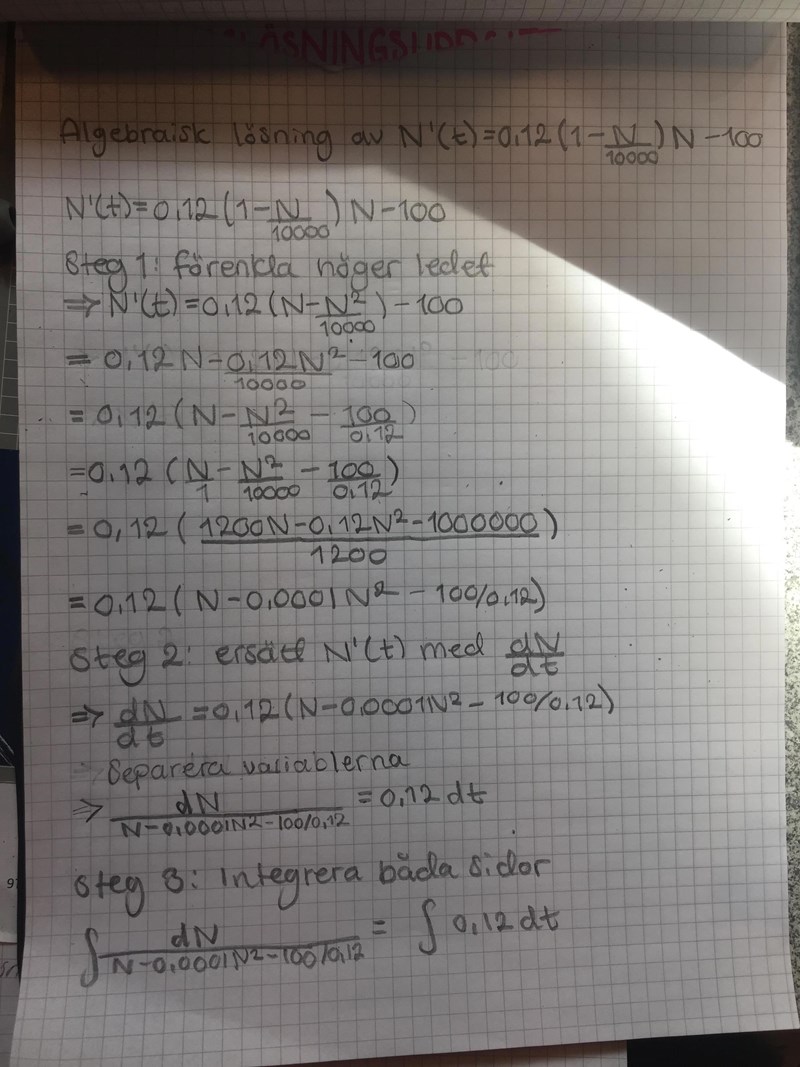 Algebraisk lösning av N'(t)=0,12(1-N/10000)N-100
N'(t)=0,12(1-N/10000)N-100
Steg 1: förenkla höger ledet
⇒ N'(t)=0,12(N-N²/10000)-100
= 0,12N-0,12N²/10000-100
= 0,12(N-N²/10000-100/0,12)
=0,12(N/1-N²/10000-100/0,12)
= 0,12((1200N-0,12N²-1000000)/1200)
=0,12(N-0,0001N²-100/0,12)
Steg 2: ersätt N'(t) med dN/dt
⇒ dN/dt=0,12(N-0,0001N²-100/0,12)
Separera variablerna
⇒ dN/(N-0,0001N²-100/0,12)=0,12dt
Steg 3: Integrera båda sidor
∫dN/(N-0,0001N²-100/0,12)=∫0,12dt